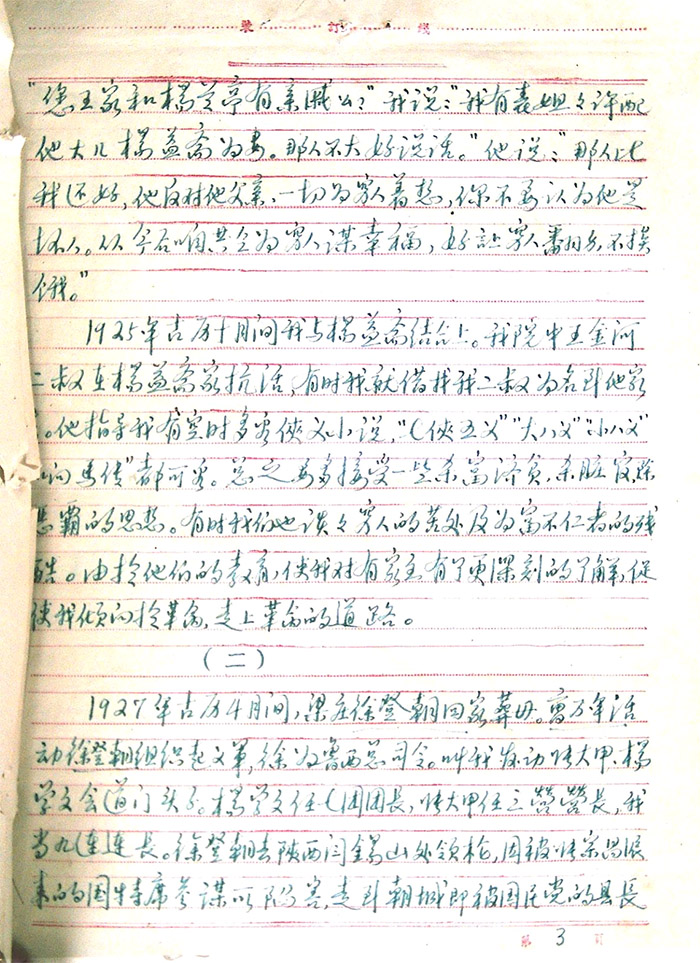 装 订 线
"您王家和杨兰亭有亲戚么?"我说:"我有表姐々许配
他大儿杨益斋为妻。那人不大好说话。"他说:"那人比
我还好,他反对他父亲,一切为穷人着想,你不要认为他是
坏人。从今后咱共仝为穷人谋幸福,好让穷人番用,不挨
饿。"
1925年古历十月间我与杨益斋结合上。我院中王金河
二叔在杨益斋家抗活,有时我就借找我二叔为名到他家
。他指导我有空时多看侠义小说,"七侠五义""大八义""小八义"
响马传"都可看。总之要多接受一些杀富济贫,杀脏官除
恶霸的思想。有时我们也谈々穷人的苦处及为富不仁者的残
酷。由于他们的教育,使我对有家主有了更深刻的了解,促
使我倾向于革命,走上革命的道路。
(二)
1927年古历4月间,梁庄徐登朝回家葬母。万年活
动徐登朝组织起义军,徐为鲁西总司令。叫我发动大甲、杨
学文会道门头子。杨学文任七团团长,大甲任三营营长,我
当九连连长。徐登朝去陕西闫锡山处领枪,因被宗昌派
来的国特席参谋所陷害,走到朝城即被国民党的县长
第 3 页